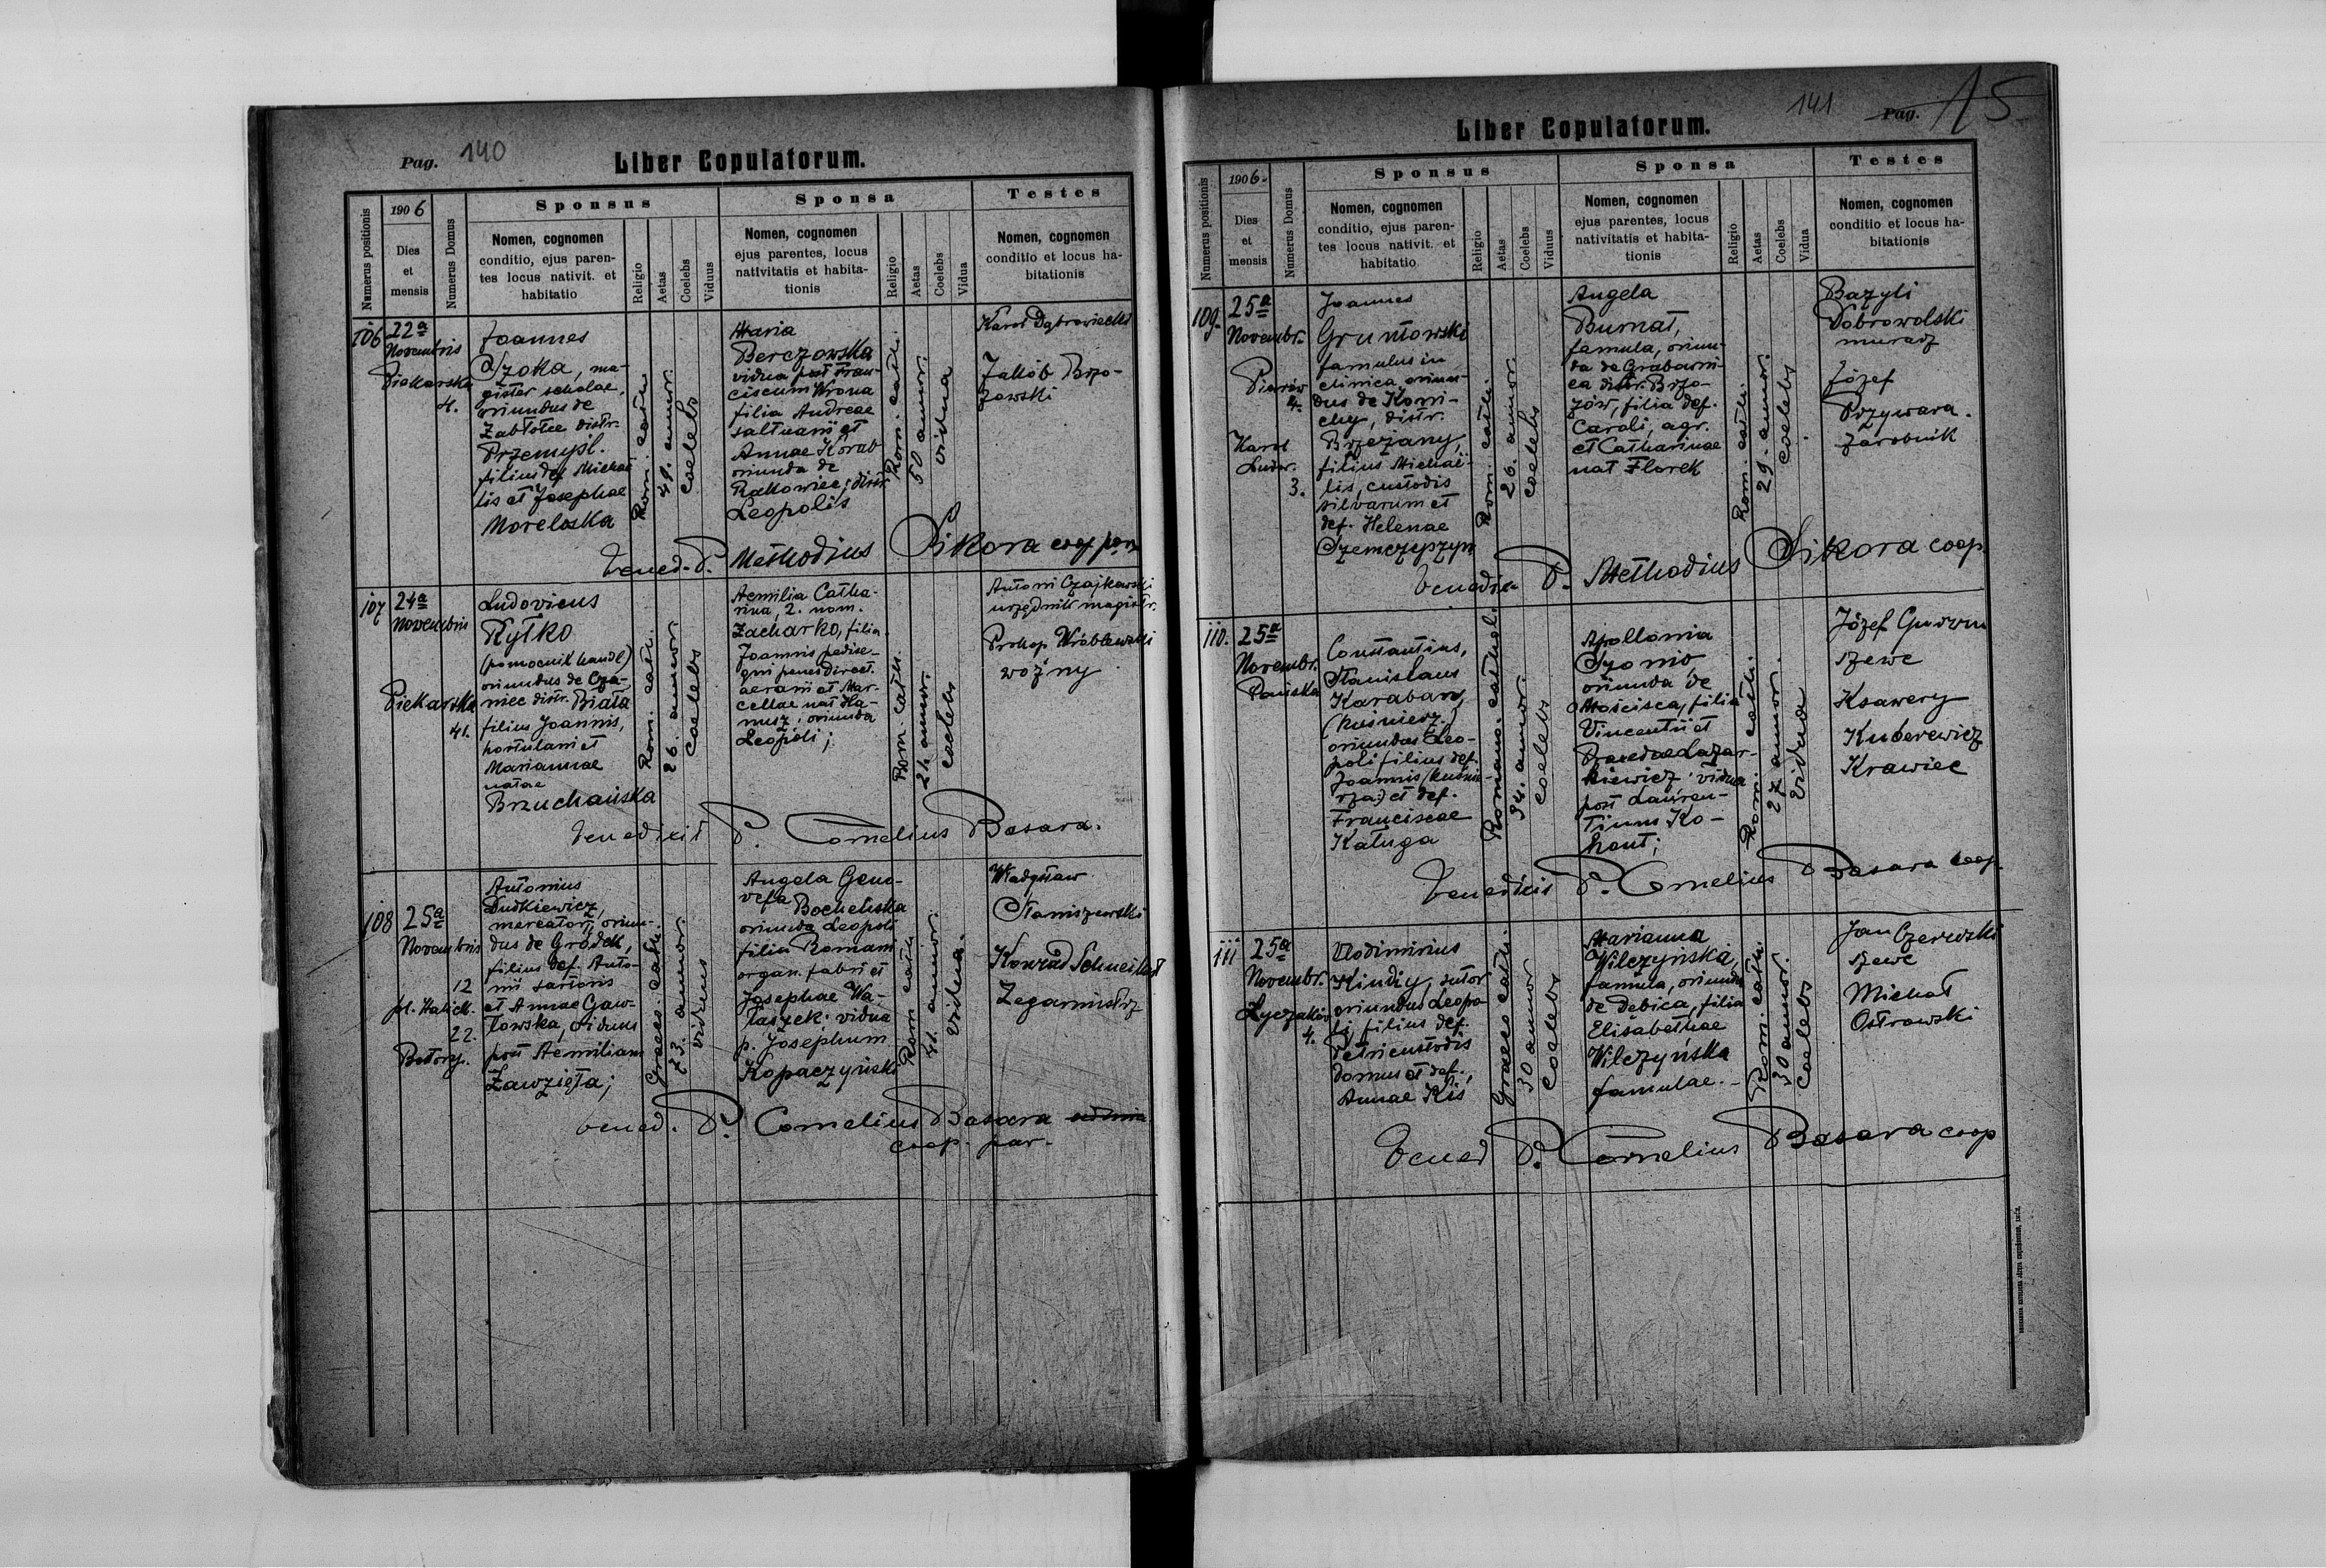 Pag. 140
Liber Copulatorum.
Numerus positionis
1906
Dies
et
mensis
Numerus Domus
Sponsus
Nomen, cognomen
conditio, ejus paren-
tes locus nativit. et
habitatio
Religio
Aetas
Coelebs
Viduus
Sponsa
Nomen, cognomen
ejus parentes, locus
nativitatis et habita-
tionis
Religio
Aetas
Coelebs
Vidua
Testes
Nomen, cognomen
conditio et locus ha-
bitationis
106
22a
Novembris
Piekarska
4.
Joannes
Szoka, ma-
gister scholae,
oriundus de
Zabłotce distr.
Przemyśl.
filius def. Michae
lis et Josephae
Moreloska
Rom. cath.
41. annor.
coelebs
Maria
Berczowska
vidua post Fran-
ciscum Wrona
filia Andreae
saltuarii et
Annae Korab
oriunda de
Rakowiec, distr.
Leopolis
Rom. cath.
50 annor.
vidua
Karol Dąbrowiecki
Jakób Brzo-
zowski
bened. P. Methodius Sikora coop. par.
107
24a
Novembris
Piekarska
41.
Ludovicus
Rytko
(pomocnik handl.)
oriundus de Cza-
niec distr. Biała
filius Joannis,
hortulani et
Mariannae
natae
Brzuchańska
Rom. cath.
26. annor.
coelebs
Aemilia Catha-
rina, 2. nom.
Zacharko, filia
Joannis pedise-
qui penes Direct.
aerarii et Mar-
cellae nat Ha-
nusz, oriunda
Leopoli;
Rom. cath.
24 annor.
coelebs
Antoni Czajkowski
urzędnik magistr.
Prokop Wróblewski
woźny
benedixit P. Cornelius Basara.
108
25a
Novembris
12
pl. Halick.
22.
Batory.
Antonius
Dudkiewicz,
mercator, oriun-
dus de Gródek,
filius def. Anto-
ni sartoris
et Annae Gaw-
łowska, viduus
post Aemiliam
Zawzięta;
Graeco cath.
annor.
viduus
Angela Geno-
vefa Bocheńska
oriunda Leopoli
filia Romani
organ. fabri et
Josephae Wa-
łaszek; vidua
p. Josephum
Kopaczyński
Rom cath
41. annor.
vidua.
Władysław
Staniszewski
Konrad Schneikart
Zegarmistrz
bened. P. Cornelius Basara
coop. par.
141 Pag. 15
Liber Copulatorum.
Numerus positionis
1906.
Dies
et
mensis
Numerus Domus
Sponsus
Nomen, cognomen
conditio, ejus paren-
tes locus nativit. et
habitatio
Religio
Aetas
Coelebs
Viduus
Sponsa
Nomen, cognomen
ejus parentes, locus
nativitatis et habita-
tionis
Religio
Aetas
Coelebs
Vidua
Testes
Nomen, cognomen
conditio et locus ha-
bitationis
109.
25a
Novembr.
Piarów
4.
Karol
Ludw.
3.
Joannes
Gruntowski
famulus in
clinica oriun-
dus de Koni-
chy, distr.
Brzeżany,
filius Michaë-
lis, custodis
silvarum et
def. Helenae
Szemczyszyn
Rom. cath.
26. annor.
coelebs
Angela
Burnat,
famula, oriun-
da de Grabowni-
ca distr. Brzo-
zów, filia def.
Caroli, agr.
et Catharinae
nat Florek
Rom. cath.
29. annor.
coelebs
Bazyli
Dobrowolski
murarz
Józef
Przywara.
Zarobnik
benedix. P. Methodius Sikora coop.
110.
25a
Novembr.
Pańska
Constantius,
Stanislaus
Karaban,
(Kuśnierz)
oriundus Leo-
poli filius def.
Joannis (kuśnie-
rza) et def.
Franciscae
Kaługa
Romano. cathol.
34. annor.
coelebs
Apollonia
Szonio
oriunda de
Mościsca, filia
Vincentii et
Praxedae Lazar-
kiewicz; vidua
post Lauren-
tium Ko-
hout;
Rom. cath.
27 annor.
vidua
Józef
szewc
Ksawery
Kuberewicz
Krawiec
benedixit P. Cornelius Basara coop.
111
25a
Novembr.
Łyczaków
4.
Vlodimirius
Kindiy, sutor
oriundus Leopo-
li, filius def.
Petri custodis
domus et def.,
Annae Kis
Graeco cath.
30 annor
coelebs
Marianna
Wilczyńska,
famula, oriunda
de Debica, filia
Elisabethae
Wilczyńska
famulae.
Rom. cath.
30 annor.
coelebs
Jan Czerwski
szewc
Michał
Ostrowski
bened P. Cornelius Basara coop